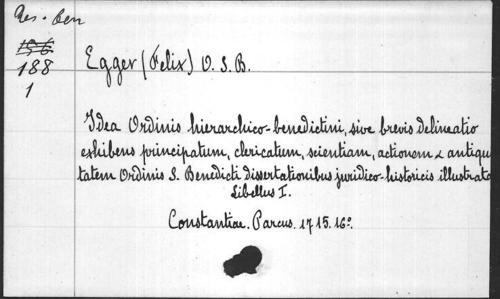 Res. ben
196
188
1
Egger (Felix) O. S. B.
Idea Ordinis hierarchico-benedictini, sive brevis delineatio
exhibens principatum, clericatum, scientiam, actionem & antiqui
tatem Ordinis S. Benedicti dissertationibus juridico-historicis illustrato
Libellus I.
Constantiae. Parcus. 1715. 16º.